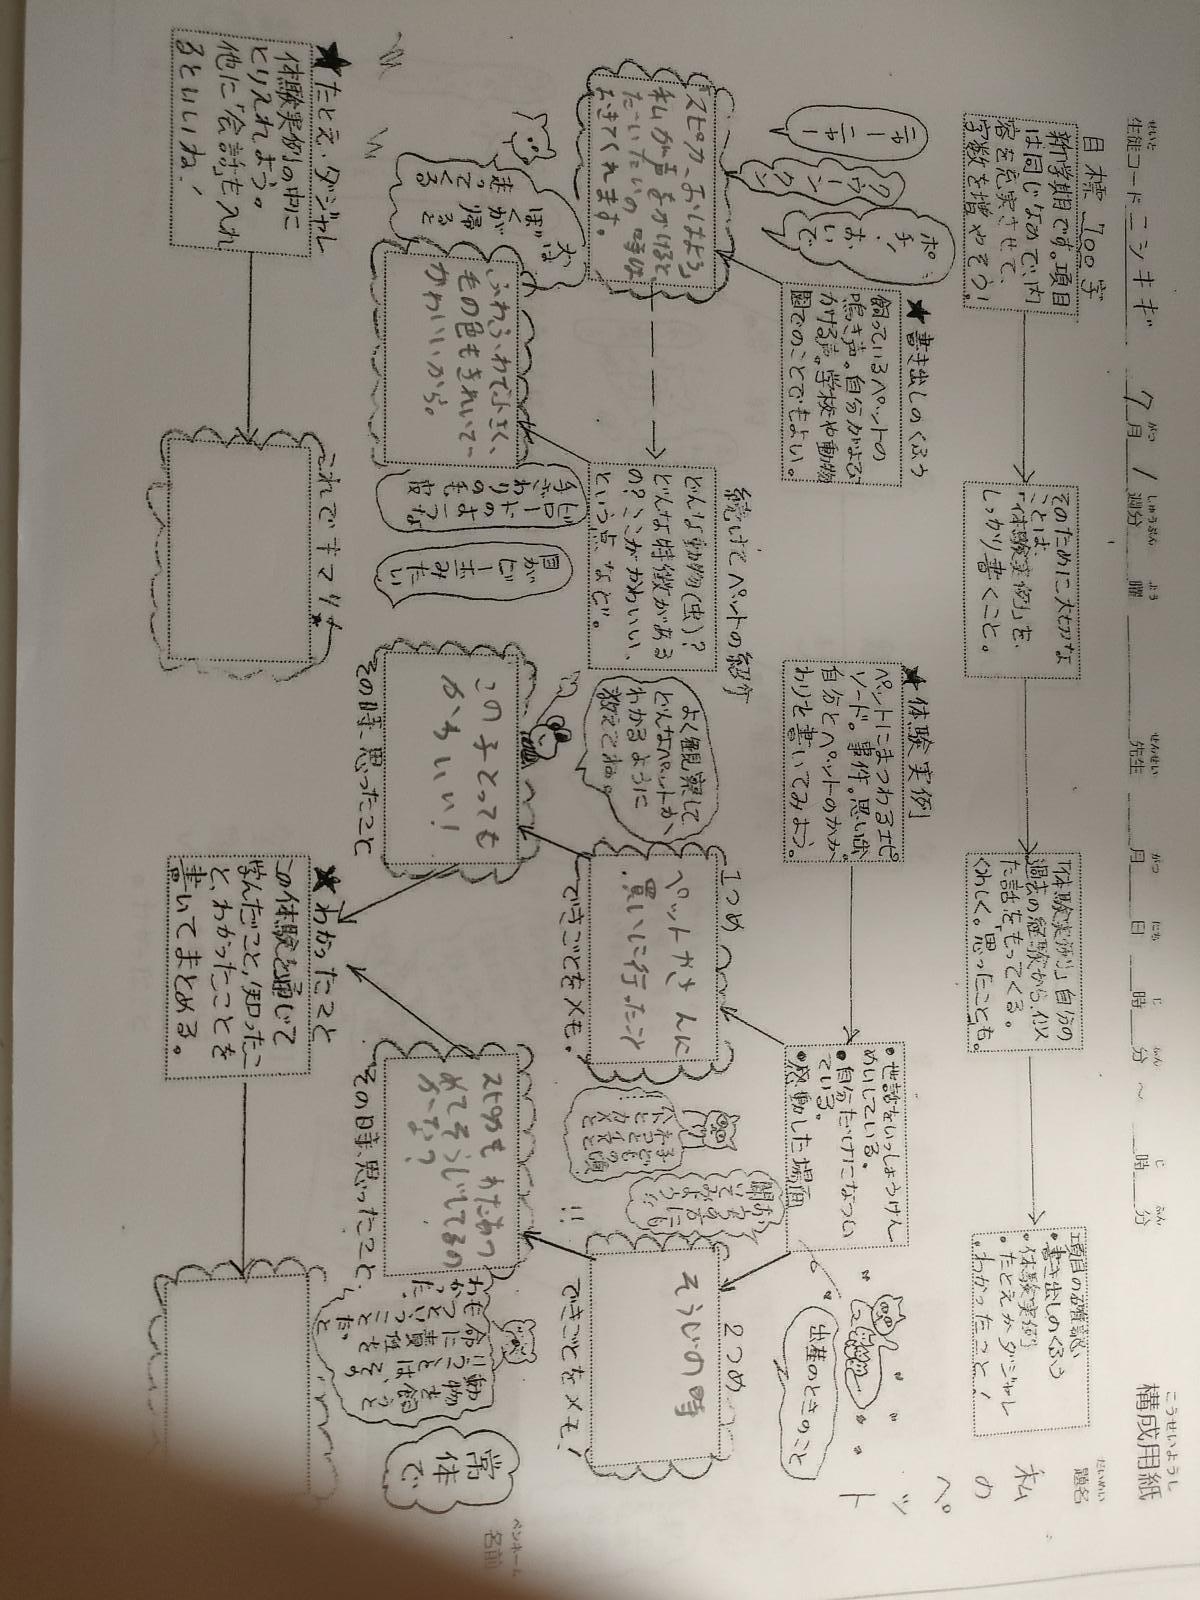 構成用紙
こうせいようし
題名
だいめい
私のペット
生徒コード ニシキギ
せいと
7月 1週分 曜 先生 月 日 時 分 ~ 時 分
がつ しゅうぶん よう せんせい がつ にち じ ふん じ ふん
目標 700字
新学期です。項目
は同じなので、内
容を充実させて、
字数を増やそう!
そのために大切な
ことは、
「体験実例」を、
しっかり書くこと。
「体験実例」自分の
過去の経験から、似
た話をもってくる。
くわしく。思ったことも。
項目の確認
・書き出しのくふう
・体験実例
・たとえかダジャレ
・わかったこと!
★書き出しのくふう
飼っているペットの
鳴き声。自分がよび
かける声。学校や動物
園でのことでもよい。
ニャーニャー
クウーンクン
ポチ、おいで
「スピカ、おはよう」
私が声をかけると、
たいていの時は
おきてくれます。
続けてペットの紹介
どんな動物(虫)?
どんな特徴がある
の?ここがかわいい、
という点など。
ぼくが帰ると
走ってくる
ふわふわで小さく、
もの色もきれいで
かわいいから。
ビロードのような
手ざわりの毛皮
目がビー玉みたい
★体験実例
ペットにまつわるエピ
ソード。事件。思い出。
自分とペットのかか
わりを書いてみよう。
よく観察して
どんなペットか、
わかるように
教えてね。
・世話をいっしょうけん
めいしている。
・自分だけになつい
ている。
・感動した場面
出産のときのこと
1つめ
ペットやさんに
買いに行ったこと
できごとをメモ。
この子とっても
かわいい!
その時、思ったこと
2つめ
そうじの時
できごとをメモ!
その時、思ったこと、
動物を飼う
ということは、
命に責任を
もつことだと
わかった。
常体で
★わかったこと
この体験を通じて
学んだこと、知ったこ
と、わかったことを
書いてまとめる。
★たとえ・ダジャレ
体験実例の中に
とり入れよう。
他に「会話」も入れ
るといいね!
これでキマリ!
ペンネーム
名前